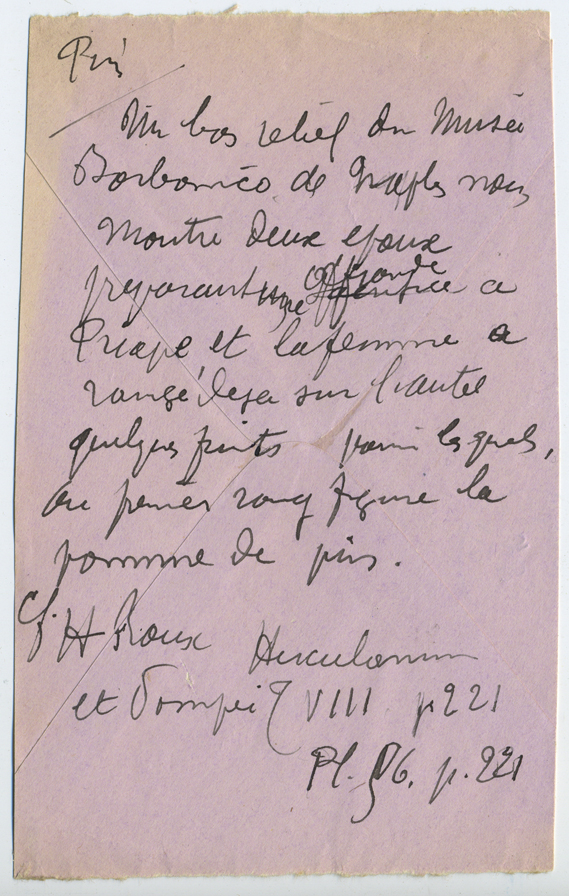 Pin
Un bas relief du Musée
Borbonico de Naples nous
montre deux epoux
preparant une offrande à
Priape et la femme a
rangé deja sur l'autel
quelques fruits parmi lesquels,
au premier rang figure la
pomme de pin.
Cf. H Roux Herculanum
et Pompei T VIII p 221
Pl. 56. p. 221